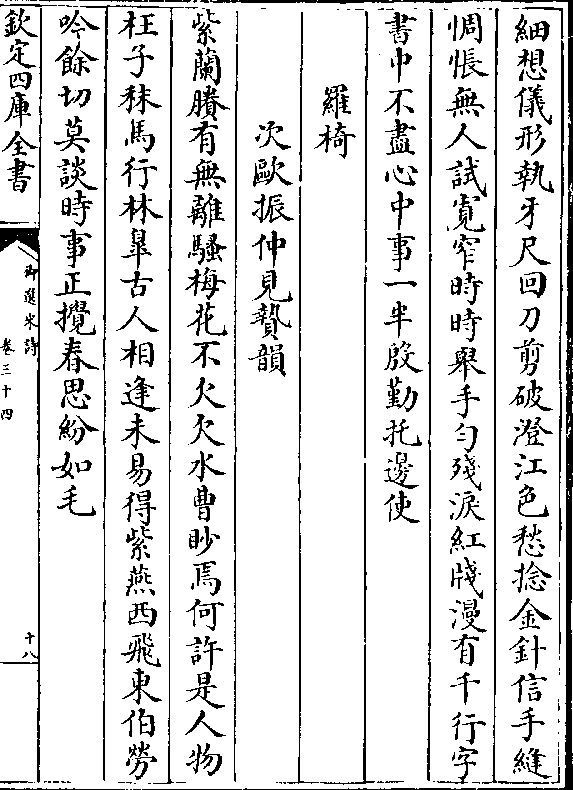 細想儀形執牙尺回刀剪破澄江色愁捻金針信手縫
惆悵無人試寛窄時時舉手勻殘淚紅牋漫有千行字
書中不盡心中事一半殷勤托邊使
羅椅
次歐振仲見贄韻
紫蘭賸有無離騷梅花不欠欠水曹眇焉何許是人物
枉子秣馬行林臯古人相逢未易得紫燕西飛東伯勞
吟餘切莫談時事正攪春思紛如毛
欽定四庫全書
御選宋詩
卷三十四
十八